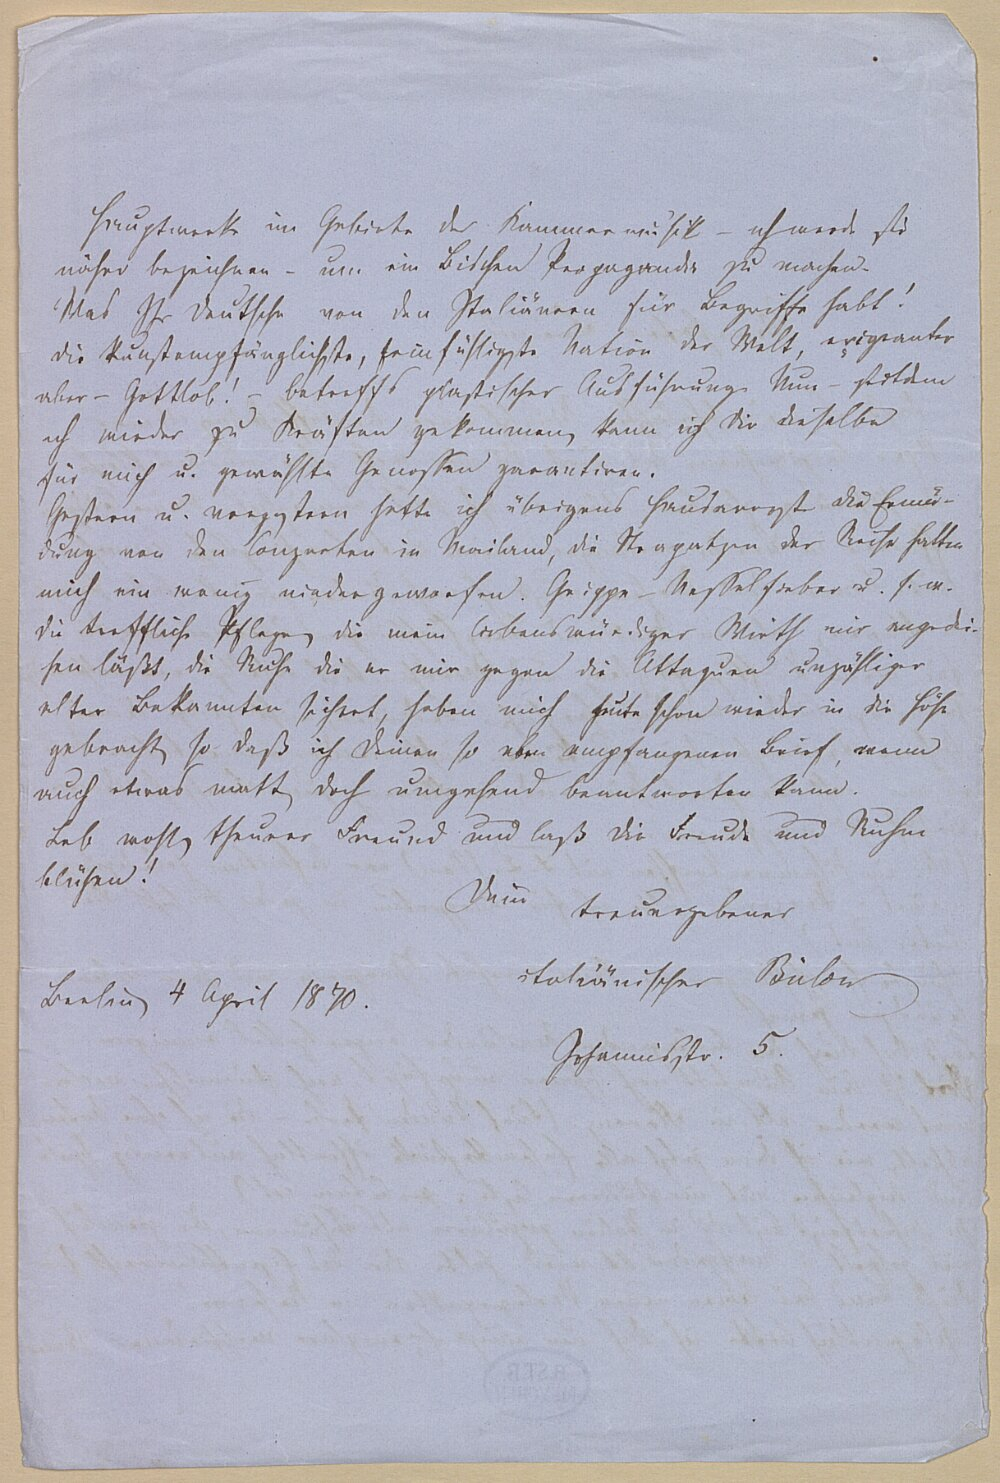 Hauptwerke im Gebiete der Kammermusik – ich werde sie
näher bezeichnen – um ein Bischen Propaganda zu machen.
Was Ihr Deutsche von den Italiänern für Begriffe habt!
die kunstempfänglichste, feinfühligste Nation der Welt, exigeanter
aber – Gottlob! – betreffs plastischer Ausführung. Nun – seitdem
ich wieder zu Kräften gekommen, kann ich Dir dieselbe
für mich u. gewählte Genossen garantiren.
Gestern u. vorgestern hatte ich übrigens Hausarrest. Die Ermü-
dung von den Conzerten in Mailand, die Strapatzen der Reise hatten
mich ein wenig niedergeworfen. Grippe – Nesselfieber u. s. w.
Die treffliche Pflege, die mein liebenswürdiger Wirth mir angedei-
hen läßt, die Ruhe die er mir gegen die Attaquen unzähliger
alter Bekannten sichert, haben mich heute schon wieder in die Höhe
gebracht, so daß ich Deinen so eben empfangenen Brief, wenn
auch etwas matt, doch umgehend beantworten kann.
Leb wohl, theurer Freund und laß Dir Freude und Ruhm
blühen!
Dein
treuergebener
italiänischer Bülow
Berlin, 4 April 1870.
Johannisstr. 5.